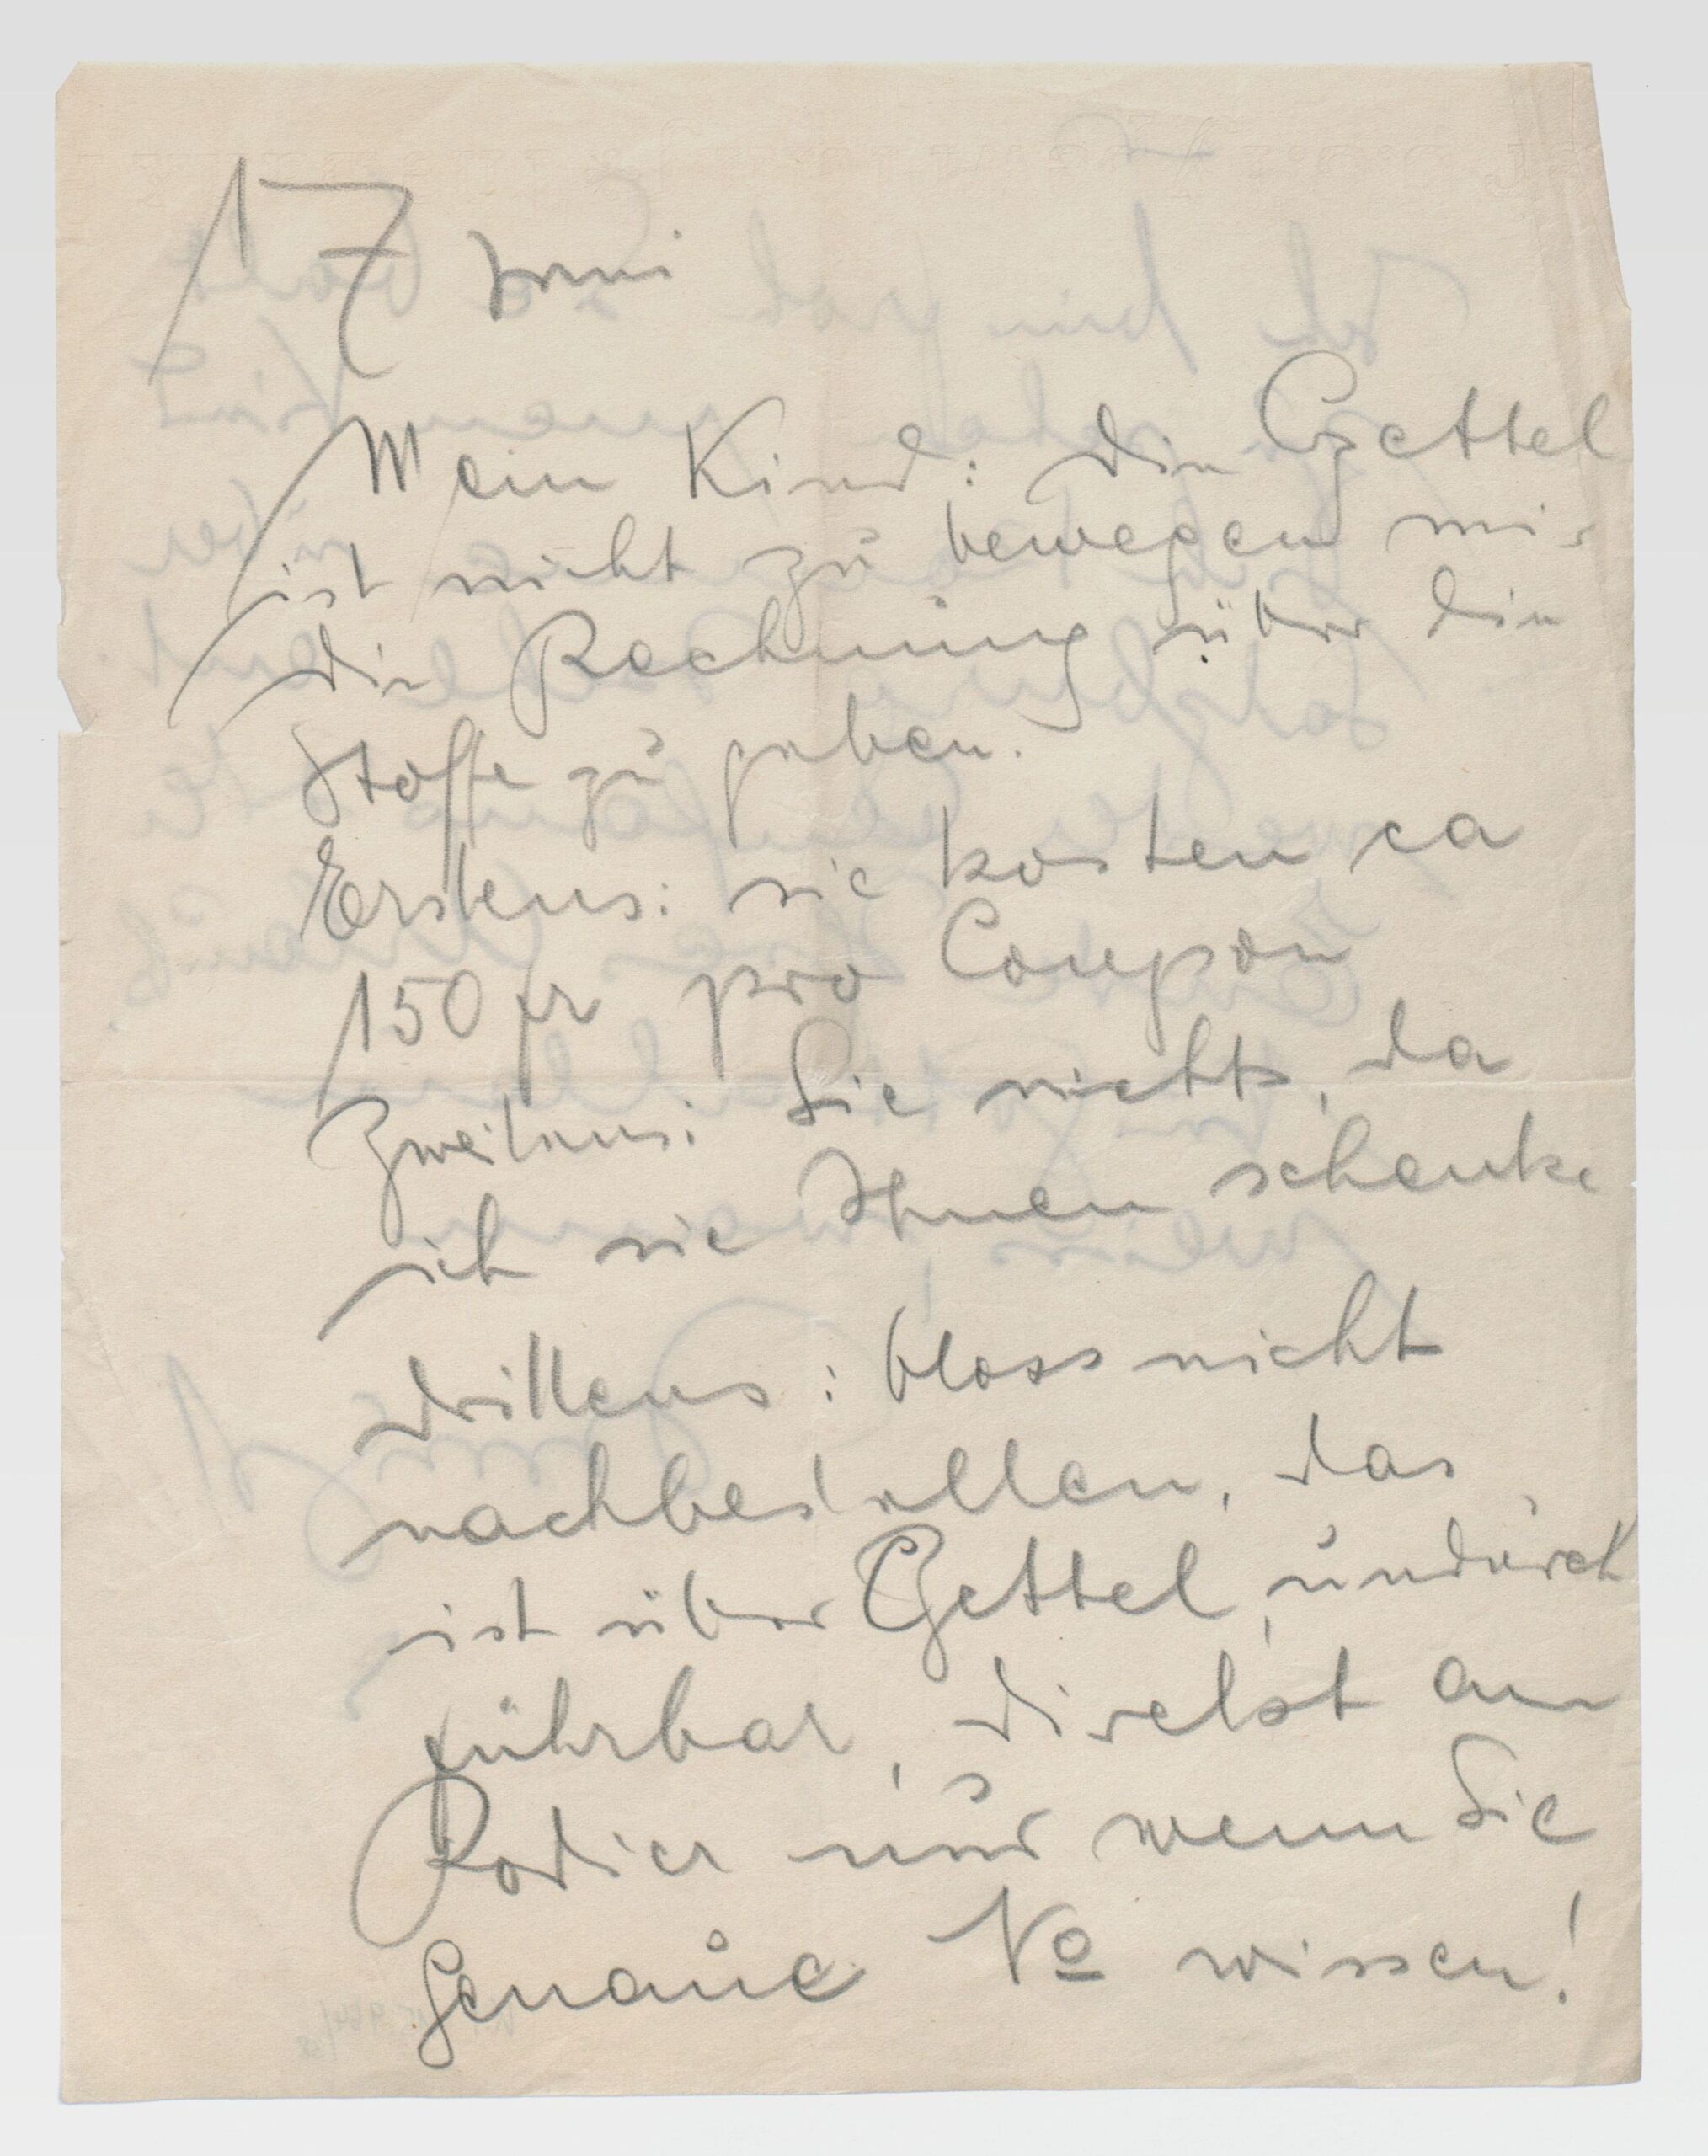 17 Juni
Mein Kind: die Czettel
ist nicht zu bewegen mir
die Rechnung über die
Stoffe zu geben.
Erstens: sie kosten ca
150 fr pro Coupon
Zweitens: Sie nichts, da
ich sie Ihnen schenke
drittens: bloss nicht
nachbestellen, das
ist über Czettel undurch
führbar, direkt an
Rodier nur wenn Sie
Genaue No wissen!